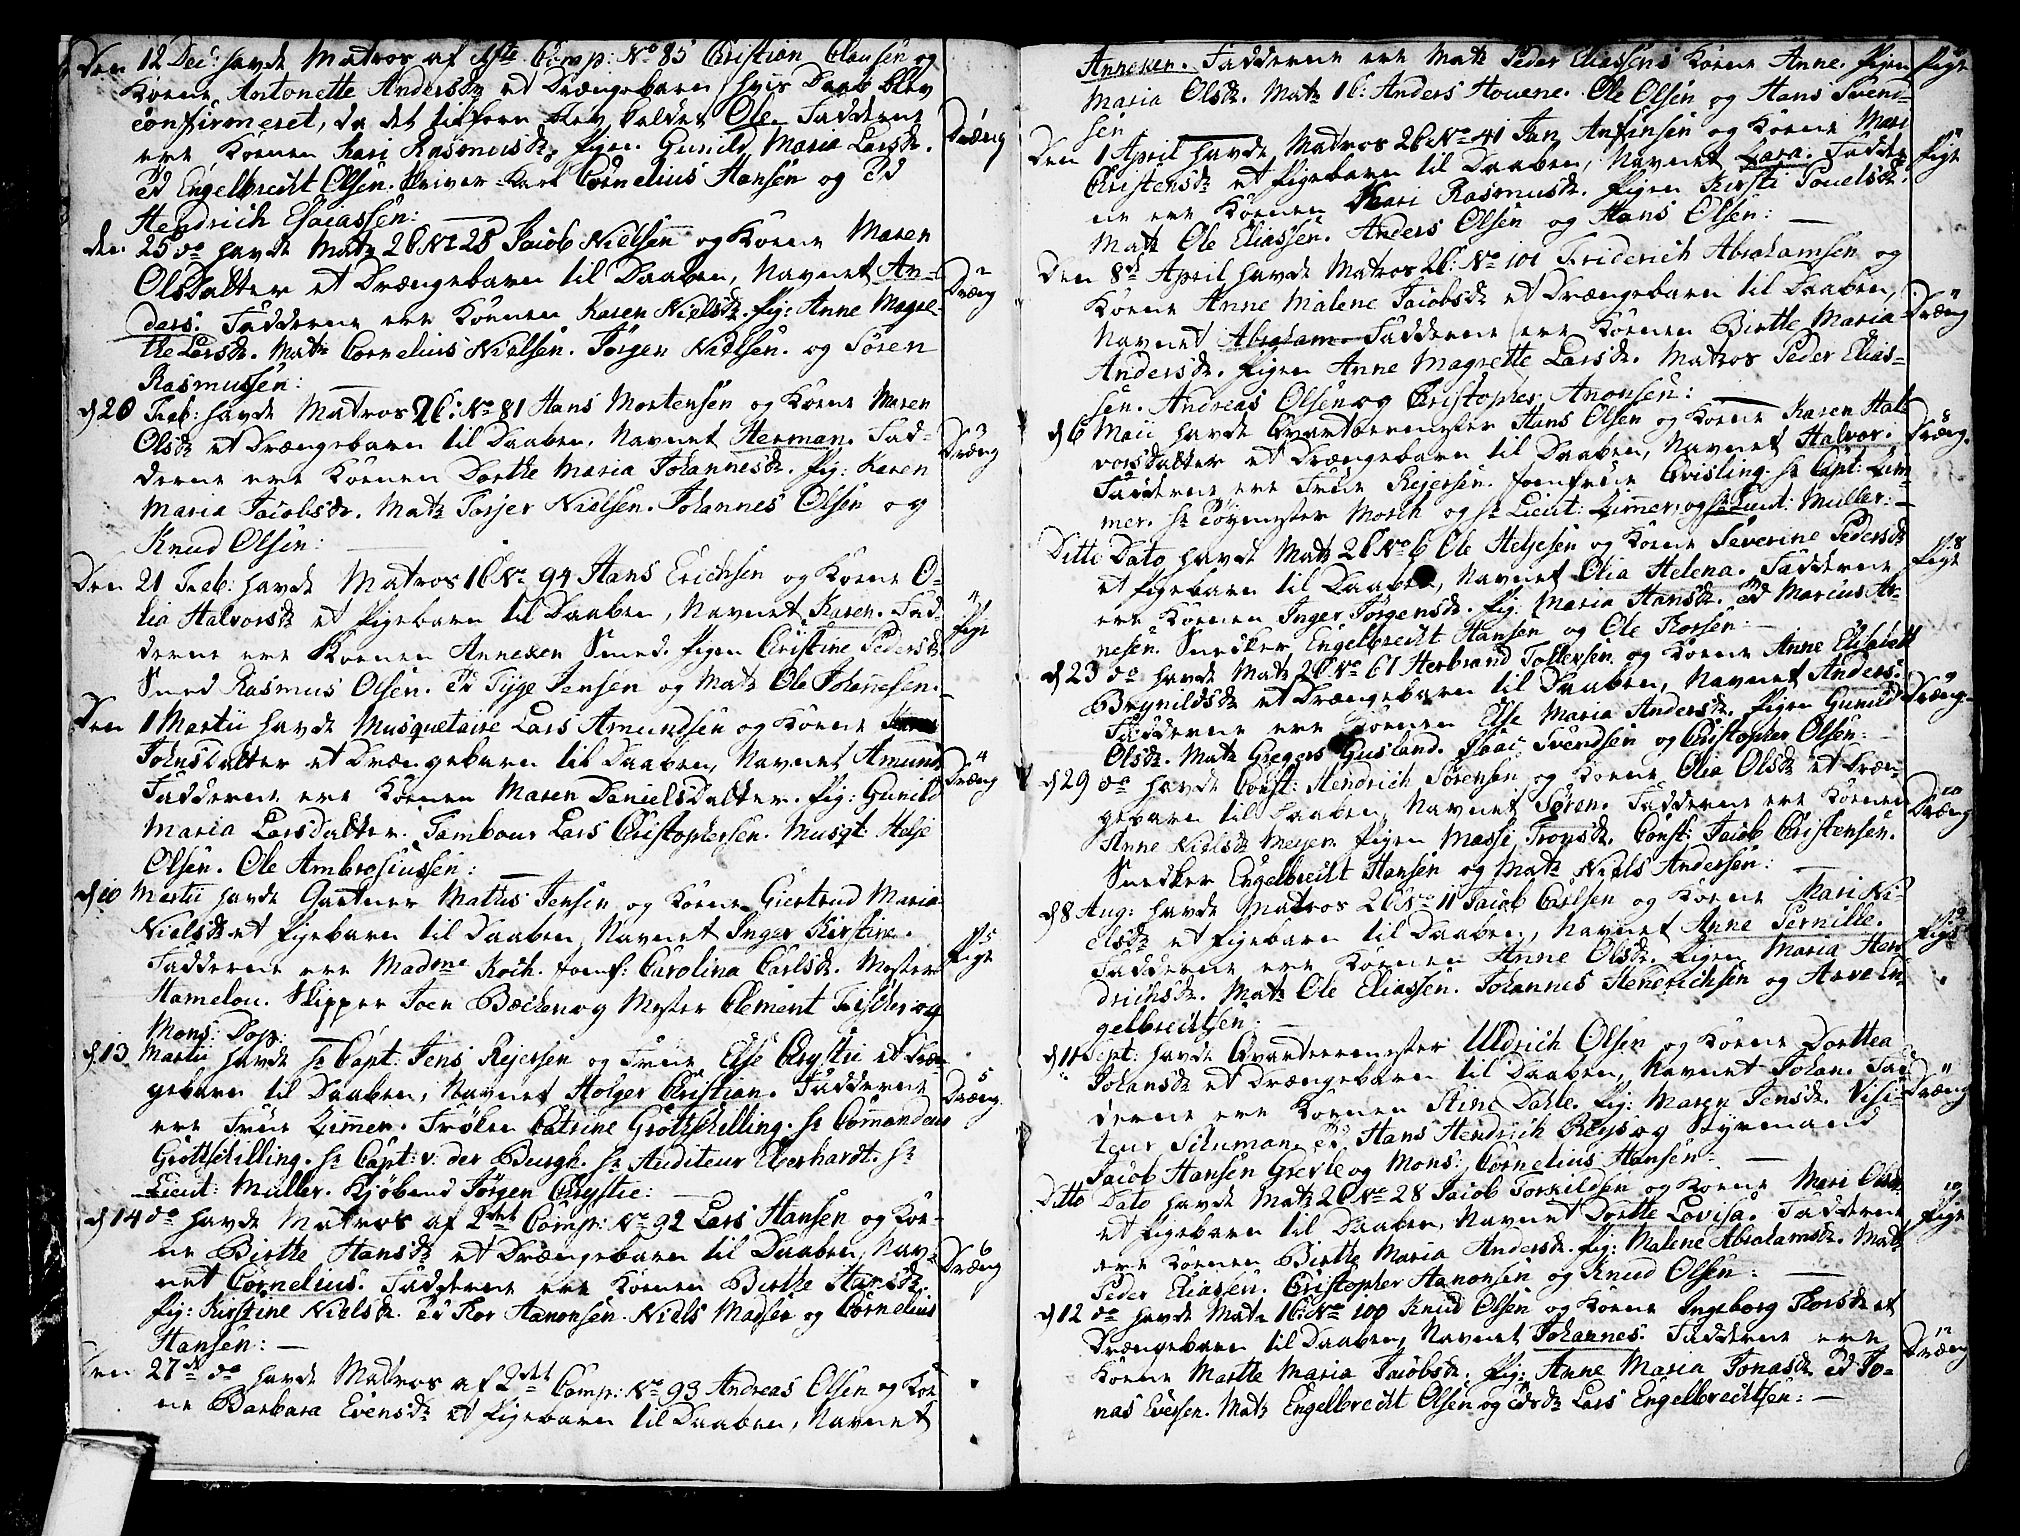 Den 12 Dec: havde Matros af 1ste Comp: No 85 Christian Clausen og
Koene Antonette Andersdr et Drængebarn hvis Daab blev
confirmeret, da det tilforn blev kaldet Ole. Fadderne
ere Koenen Kari Rasmusdr. Pigen Gunild Maria Larsdr.
Ed Engelbrecht Olsen. Skriver-Karl Cornelius Hansen og Ed
Hendrich Esaiassen:
Dræng
den 25 do havde Matr 2C No 28 Jacob Nielsen og Koene Maren
Olsdatter et Drængebarn til Daaben, Navnet An-
ders. Fadderne ere Koenen Karen Nielsdr. Pig: Anne Magre-
the Larsdr. Matr Cornelius Nielsen. Jørgen Nielsen. og Søren
Rasmussen:
2 Dræng
d 20 Feb: havde Matros 2C: No 81 Hans Mortensen og Koene Maren
Olsdr et Drængebarn til Daaben. Navnet Herman. Fad-
derne ere Koenen Dorthe Maria Johannesdr. Pig: Karen
Maria Jacobsdr. Matr Tarjer Nielsen. Johannes Olsen og
Knud Olsen:
3 Dræng
Den 21 Feb: havde Matros 1C No 94 Hans Erichsen og Koene O-
lia Halvorsdr et Pigebarn til Daaben, Navnet Karen. Fad-
derne ere Koenen Anneken Smed. Pigen Christine Pedersdr.
Smed Rasmus Olsen. Ed Tyge Jensen og Matr Ole Johannesen.
4 Pige
Den 1 Martii havde Musquetaire Lars Amundsen og Koene
Johnsdatter et Drængebarn til Daaben, Navnet Amund
Fadderne ere Koenen Maren Danielsdatter. Pig: Gunild
Maria Larsdatter. Tambour Lars Christophersen. Musqt Helje
Olsen. Ole Ambrosiussen:
4 Dræng
d 10 Martii havde Gartner Mathis Jensen og Koene Giertrud Maria
Nielsdr et Pigebarn til Daaben, Navnet Inger Kirstine.
Fadderne ere Madme Koch. Jomf: Carolina Carlsdr. Mester
Hamelou. Skipper Joen Bæcken og Mester Clement Fischer og
Mons: Dop:
5 Pige
d 13 Martii havde Hr Capt: Jens Rejersen og Frue Else Chrystie et Dræn
gebarn til Daaben, Navnet Holger Christian. Fadderne
ere Frue Zimmer. Frøken Catrine Grottschilling. Hr Comandeur
Grottschilling. Hr Capt: v. der Burgh. Hr Auditeur Eberhardt. Hr
Lieut: Müller. Kjøbmd Jørgen Chrystie:
5 Dræng
d 14 do havde Matros af 2det Comp: No 92 Lars Hansen og Koe-
ne Birthe Hansdr et Drængebarn til Daaben, Nav-
net Cornelius. Fadderne ere Koenen Birthe Hansdr.
Pig: Kirstine Nielsdr. Ed Roer Aanonsen. Niels Madsen og Cornelius
Hansen:
6 Dræng
Den 27de do havde Matros af 2det Comp: No 93 Andreas Olsen og Koe
ne Barbara Evensdr et Pigebarn til Daaben, Navnet
Anneken. Fadderne ere Matr Peder Eliassens Koene Anne. Pigen
Maria Olsdr. Matr 1C: Anders Houene. Ole Olsen og Hans Svend-
sen
Pige
Den 1 April havde Matros 2C No 41 Jan Anfinsen og Koene Mari
Christensdr et Pigebarn til Daaben, Navnet Lara. Fadder
ne ere Koenen Kari Rasmusdr. Pigen Kirsti Pouelsdr.
Matr Ole Eliassen. Anders Olsen og Hans Olsen:
Pige
Den 8de April havde Matros 2C: No 101 Friderich Abrahamsen og
Koene Anne Malene Jacobsdr et Drængebarn til Daaben,
Navnet Abraham. Fadderne ere Koenen Birthe Maria
Andersdr. Pigen Anne Magrette Larsdr. Matros Peder Elias-
sen. Andreas Olsen og Christopher Anonsen:
Dræng
d 6 Maii havde Qvarteermester Hans Olsen og Koene Karen Hal-
vorsdatter et Drængebarn til Daaben, Navnet Halvor.
Fadderne ere Frue Rejersen. Jomfrue Qvisling. Hr Capt: Zim-
mer. Hr Tøymester Morch og Hr Lieut: Zimmer, og Hr Lieut: Müller:
8 Dræng.
Ditto Dato havde Matr 2C No 6 Ole Heljesen og Koene Severine Pedersdr
et Pigebarn til Daaben, Navnet Olia Helena. Fadderne
ere Koenen Inger Jørgensdr. Pig: Maria Hansdr. Ed Marcus Ar-
nesen. Snedker Engelbrecht Hansen og Ole Rorsen:
8 Pige
d 23 do havde Matr 2C No 61 Herbrand Tollersen og Koene Anne Elisabeth
Brynildsdr et Drængebarn til Daaben, Navnet Anders.
Fadderne ere Koenen Else Maria Andersdr. Pigen Gunild
Olsdr. Matr Gregers Gusland. Isaac Svendsen og Christopher Olsen:
9 Dræng.
d 29 do havde Const: Hendrich Sørensen og Koene Olia Olsdr et Dræn-
gebarn til Daaben, Navnet Søren. Fadderne ere Koenen
Anne Nielsdr Meyer. Pigen Massi Tronsdr. Const: Jacob Christensen.
Snedker Engelbrecht Hansen og Matr Niels Andersen:
10 Dræng
d 8 Aug: havde Matros 2C No 11 Jacob Carlsen og Koene Mari Ni-
elsdr et Pigebarn til Daaben, Navnet Anne Pernille.
Fadderne ere Koenen Anne Olsdr. Pigen Maria Hen
drichsdr. Matr Ole Eliassen. Johannes Hendrichsen og Aave En-
gelbrechtsen:
9 Pige
d 11 Sept: havde Qvarteermester Uldrich Olsen og Koene Dorthea
Johansdr et Drængebarn til Daaben, Navnet Johan. Fad
derne ere Koenen Stine Dahle. Pig: Maren Jensdr. Visi-
teur Schuman. Ed Hans Hendrich Reys og Styrmand
Jacob Hansen Greve og Mons: Cornelius Hansen:
11 Dræng
Ditto Dato havde Matr 2C No 28 Jacob Torkildsen og Koene Mari Olsdr
et Pigebarn til Daaben, Navnet Dorthe Lovisa. Fadderne
ere Koenen Birthe Maria Andersdr. Pig: Malene Abrahamsdr. Matr
Peder Eliasen. Christopher Aanonsen og Knud Olsen:
10 Pige
d 12 do havde Matr 1C: No 100 Knud Olsen og Koene Ingeborg Rorsdr et
Drængebarn til Daaben, Navnet Johannes. Fadderne ere
Koene Marthe Maria Jacobsdr. Pig: Anne Maria Jonasdr. Ed Jo-
nas Eversen. Matr Engelbrecht Olsen og Lars Engelbrechtsen:
12 Dræng